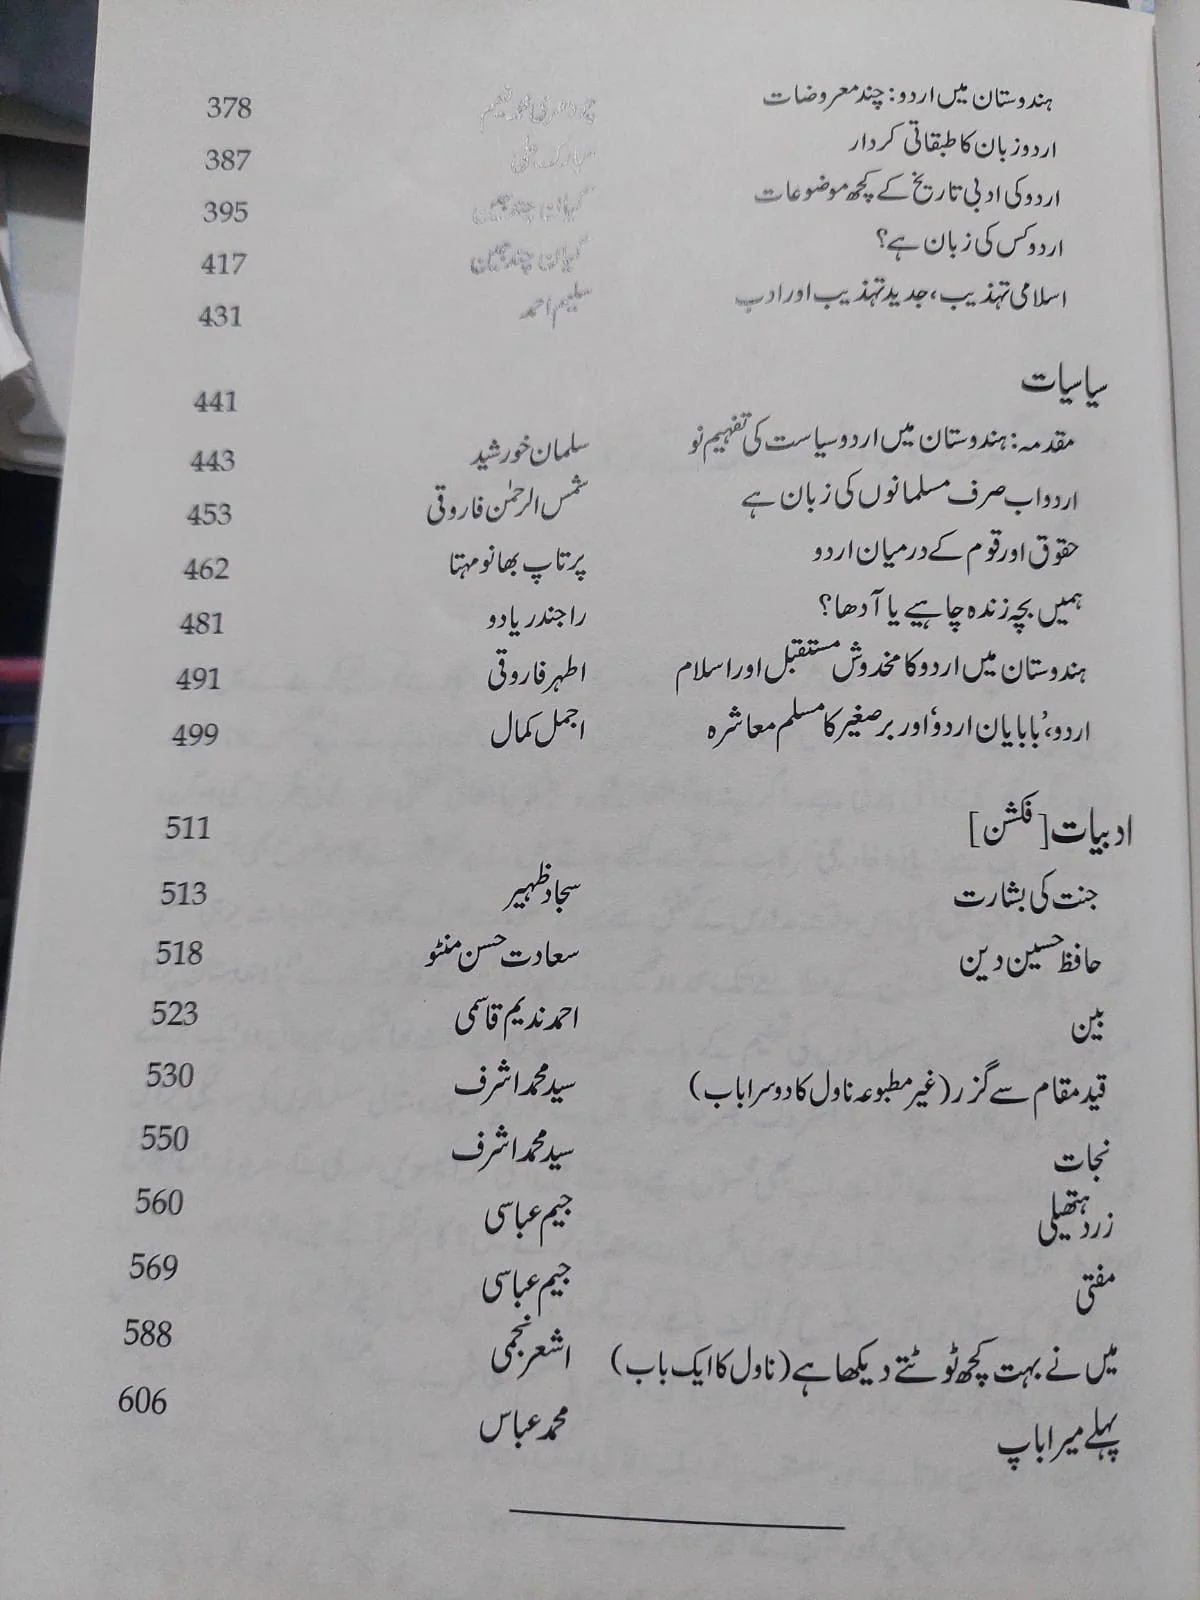 ہندوستان میں اردو: چند معروضات 378
اردو زبان کا طبقاتی کردار 387
اردو کی ادبی تاریخ کے کچھ موضوعات گیان چند جین 395
اردو کس کی زبان ہے؟ گیان چند جین 417
اسلامی تہذیب، جدید تہذیب اور ادب سلیم احمد 431
سیاسیات 441
مقدمہ: ہندوستان میں اردو سیاست کی تفہیم نو سلمان خورشید 443
اردو اب صرف مسلمانوں کی زبان ہے شمس الرحمٰن فاروقی 453
حقوق اور قوم کے درمیان اردو پرتاپ بھانو مہتا 462
ہمیں بچہ زندہ چاہیے یا آدھا؟ راجندر یادو 481
ہندوستان میں اردو کا مخدوش مستقبل اور اسلام اطہر فاروقی 491
اردو، ’بابایان اردو‘ اور برصغیر کا مسلم معاشرہ اجمل کمال 499
ادبیات [فکشن] 511
جنت کی بشارت سجاد ظہیر 513
حافظ حسین دین سعادت حسن منٹو 518
بین احمد ندیم قاسمی 523
قید مقام سے گزر (غیر مطبوعہ ناول کا دوسرا باب) سید محمد اشرف 530
نجات سید محمد اشرف 550
زرد ہتھیلی جیم عباسی 560
مفتی جیم عباسی 569
میں نے بہت کچھ ٹوٹتے دیکھا ہے (ناول کا ایک باب) اشعر نجمی 588
پہلے میرا باپ محمد عباس 606